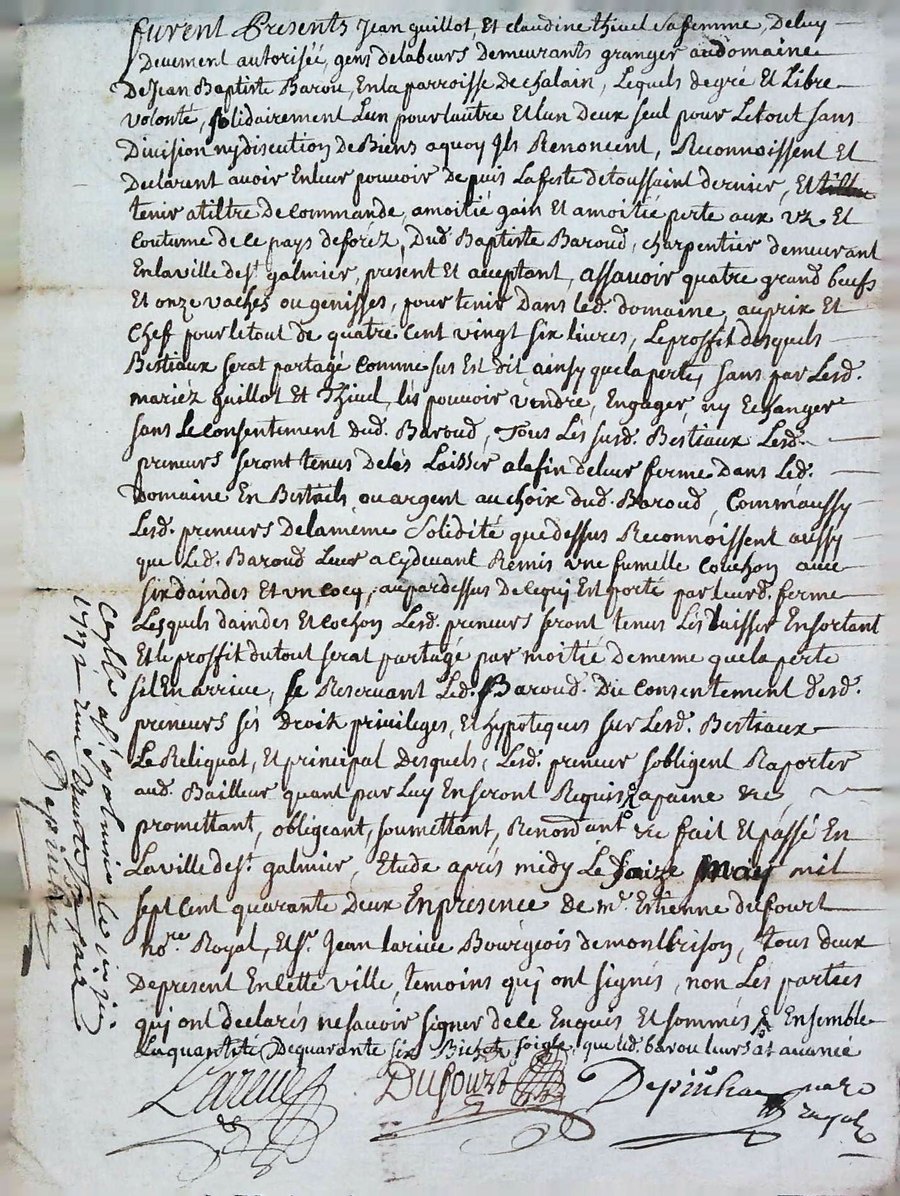 furent Presents Jean guillot, Et claudine thiuel sa femme, De luy
Deuement autorisée, gens delabeurs demeurants granger au domaine
De Jean Baptiste Barou, En la parroisse De chalain, Lequels de gré Et Libre
volonté, solidairement Lun pour lautre Et lun deux seul pour Le tout sans
Division ny discution de Biens a quoy Ils Renoncent, Reconnoissent Et
Declarent auoir En leur pouuoir depuis La feste de toussaint dernier, Et
tenir a tiltre de commande, a moitié gain Et a moitié perte aux vz Et
coutume de le pays de foréz, Dud. Baptiste Baroud, charpentier demeurant
En la ville de st. galmier, présent Et acceptant, assauoir quatre grand beufs
Et onze vaches ou genisses, pour tenir Dans led. domaine, au prix Et
Cheff pour le tout de quatre Cent vingt six livres, Le proffit desquels
Bestiaux serat partagé Comme sus Est dit ainsy que la perte, sans par Lesd.
mariéz guillot Et Thiuel, lés pouvoir vendre, Engager, ny Echanger
sans Le consentement dud. Baroud, Tous Lés susd. Bestiaux Lesd.
preneurs seront tenus de lés Laisser a la fin de leur ferme dans Led.
Domaine En Bestails, ou argent au choix dud. Baroud, Comm'aussy
Lesd. preneurs De la même Solidité que dessus Reconnoissent aussy
que Led. Baroud Leur a Cy deuant Remis vne fumelle Couchon auec
six daindes Et vn cocq, au par dessus de ce qui Est porté par leurd. ferme
Lesquels daindes Et cochon Lesd. preneurs seront tenus Lés laisser En sortant
Et le proffit du tout serat partagé par moitié de meme que la perte
sil En arriue, se Reseruant Led. Baroud. Du Consentement desd.
preneurs sés Droit privileges, Et hypoteques sur Lesd. Bestiaux
Le Reliquat, Et principal Desquels, Lesd. preneur sobligent Raporter
aud. Bailleur quant par Luy En seront Requis a paine &c,
promettant, obligeant, soumettant, Renonçant &c fait Et passé En
La ville de st. galmier, Etude aprés midy Le saize may mil
sept Cent quarante Deux En presence de mr. Etienne dufourt
nore. Royal, Et sr. Jean lariue Bourgeois de montbrison, tous deux
De present En cette ville, temoins qui ont signés, non Les parties
qui ont declarés ne sauoir signer de le Enquis Et sommés Ensemble
La quantité De quarante six Bichet soigle, que led. barou leurs at auancé
Larieu
Dufourt
Depiuhac
royal
1742